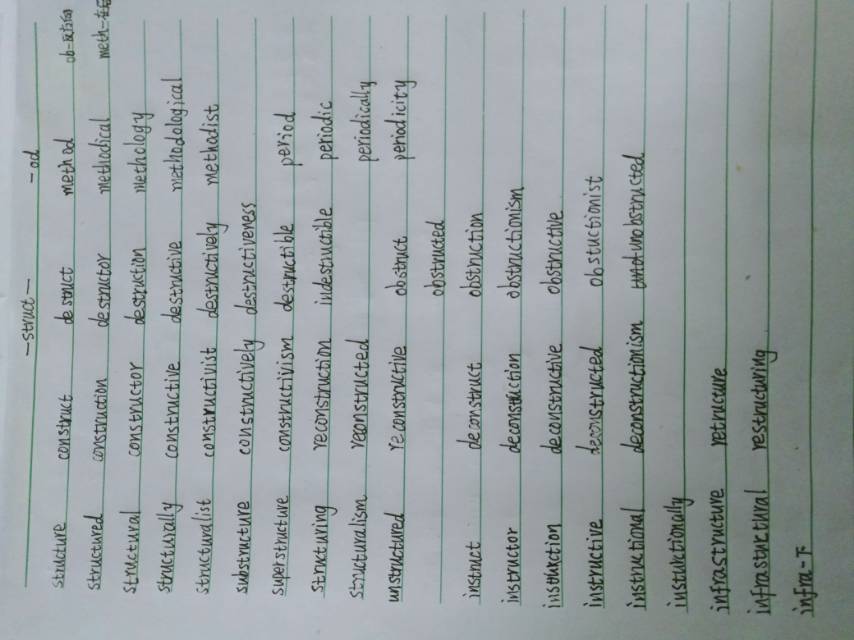 -struct- -od
structure construct destruct method ob-反方向
structured construction destructor methodical
structural constructor destruction methology
structurally constructive destructive methodological
structuralist constructivist destructively methodist
substructure constructively destructiveness
superstructure constructivism destructible period
structuring reconstruction indestructible periodic
structuralism reconstructed periodically
unstructured reconstructive obstruct periodicity
obstructed
instruct deconstruct obstruction
instructor deconstruction obstructionism
instruction deconstructive obstructive
instructive deconstructed obstuctionist
instructional deconstructionism unobstructed
instructionally
infrastructure retructure
infrastuctural restructuring
infra-下